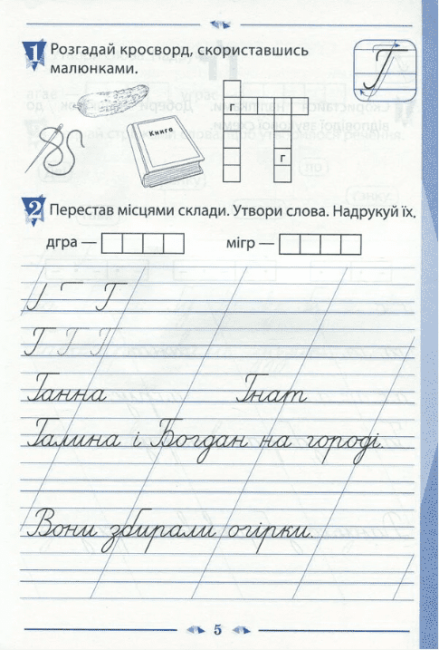 1 Розгадай кросворд, скориставшись
малюнками.
Г
Книга
г
г
2 Перестав місцями склади. Утвори слова. Надрукуй їх.
дгра —
мігр —
Г
Г Г Г
Ганна Гнат
Галина і Богдан на городі.
Вони збирали огірки.
5